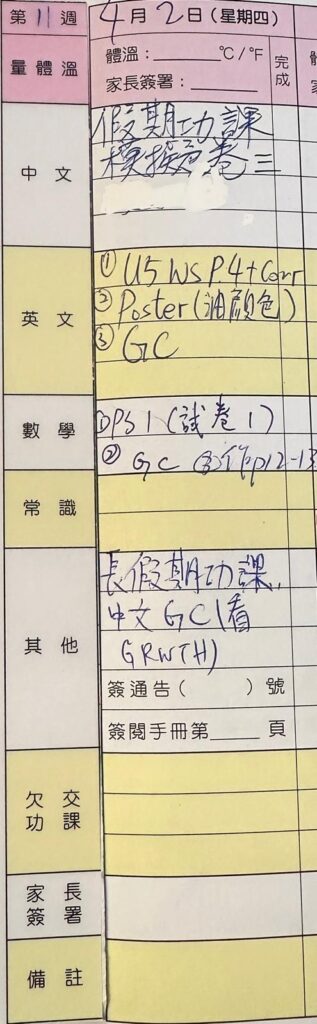 第11週
4月2日(星期四)
量體溫
體溫:______℃/℉
家長簽署:______
完成
中文
假期功課
模擬卷三
英文
① U5 WS P.4+Corr
② Poster(油顏色)
③ GC
數學
①PS1(試卷1)
② GC ③作p12-13
常識
其他
長假期功課
中文GC(看
GRWTH)
簽通告( )號
簽閱手冊第____頁
欠交功課
家長簽署
備註